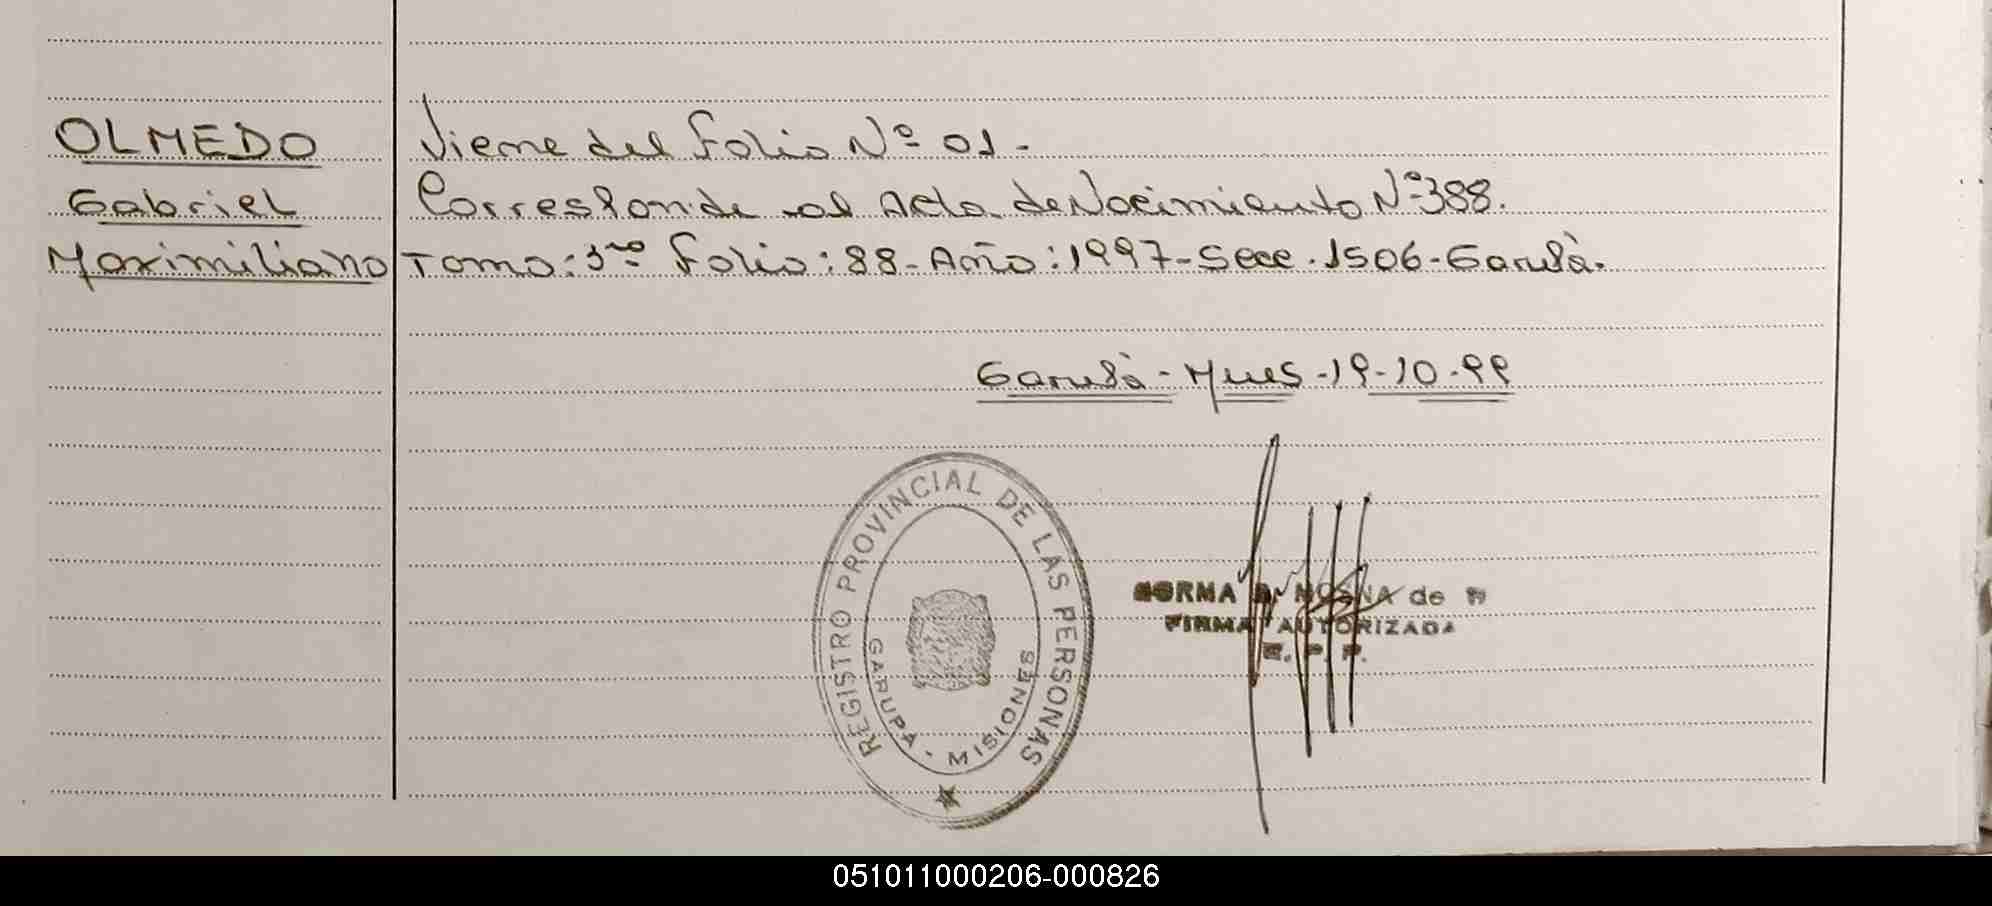 OLMEDO Viene del Folio Nº 01-
Gabriel Corresponde al Acta de Nacimiento Nº 388.
Maximiliano Tomo: 3ro Folio: 88- Año: 1997- Secc. 1506- Garupá.
Garupá - Mnes - 19-10-99
REGISTRO PROVINCIAL DE LAS PERSONAS
GARUPA - MISIONES
NORMA de
FIRMA AUTORIZADA
051011000206-000826